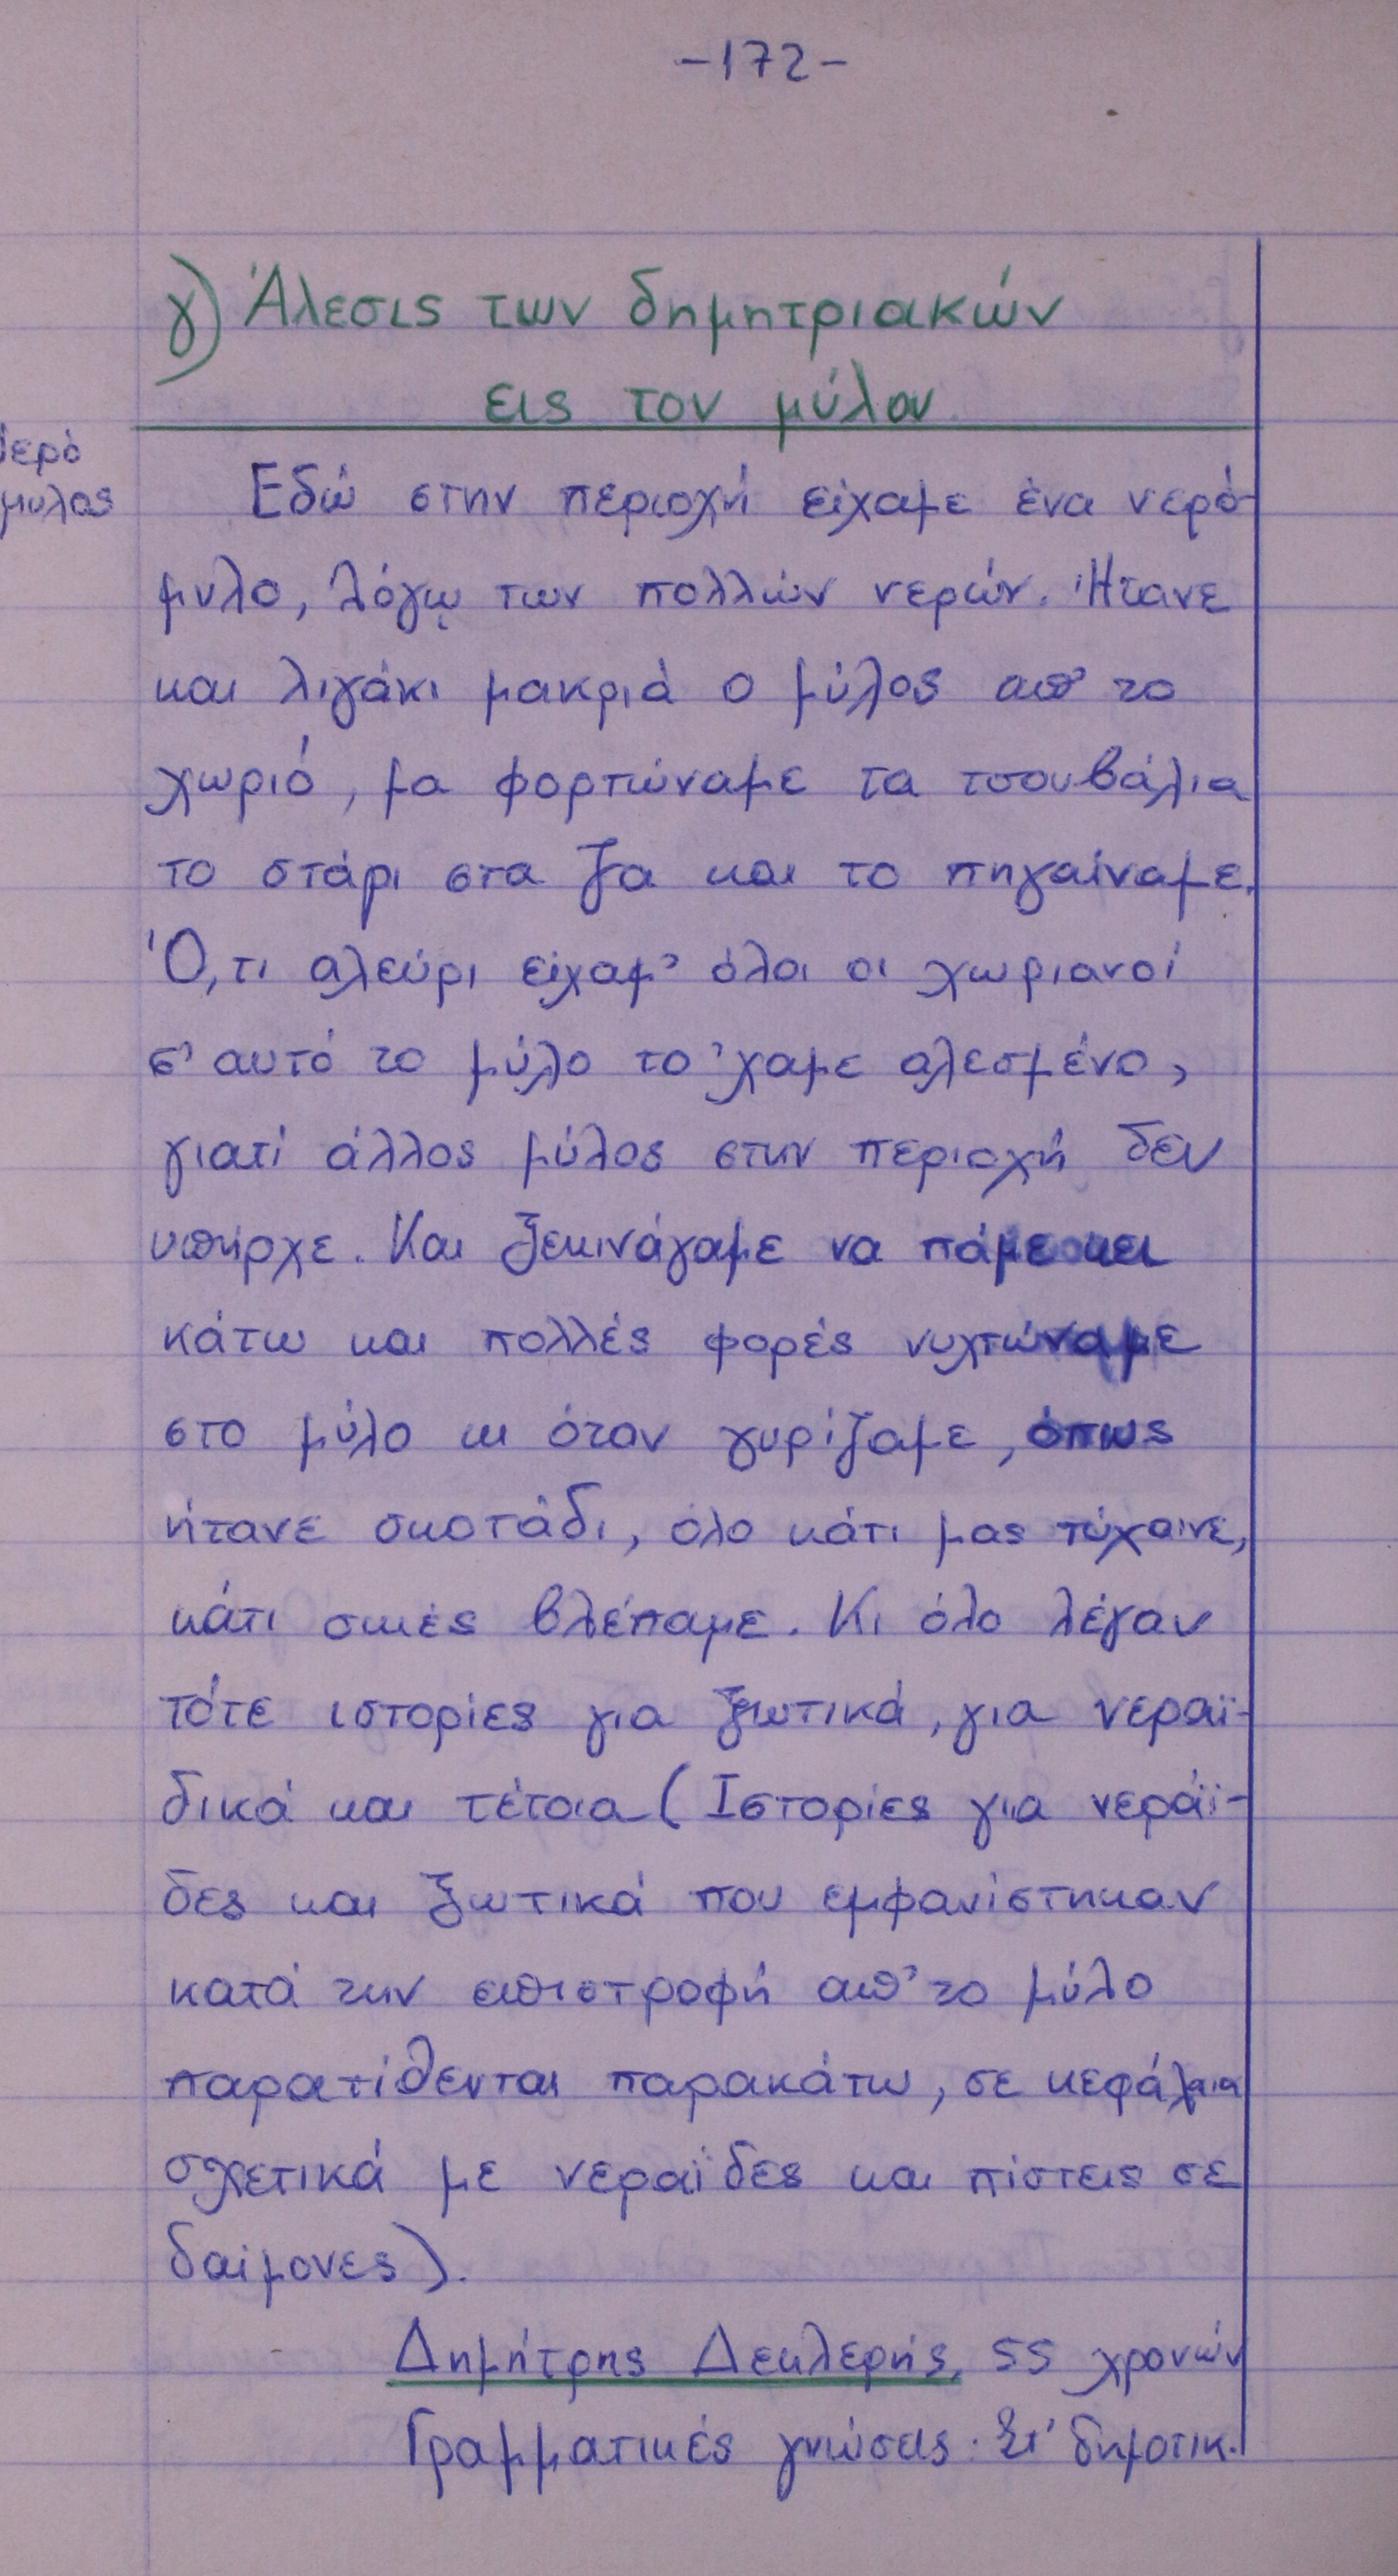 -172-
γ) Άλεσις των δημητριακών
εις τον μύλον
νερό
μυλος
Εδώ στην περιοχή είχαμε ένα νερό-
μυλο, λόγω των πολλών νερών. Ήτανε
και λιγάκι μακριά ο μύλος απ' το
χωριό, μα φορτώναμε τα τσουβάλια
το στάρι στα ζα και το πηγαίναμε.
Ό,τι αλεύρι είχαμ' όλοι οι χωριανοί
σ' αυτό το μύλο το 'χαμε αλεσμένο,
γιατί άλλος μύλος στην περιοχή δεν
υπήρχε. Και ξεκινάγαμε να πάμε κει
κάτω και πολλές φορές νυχτώναμε
στο μύλο κι όταν γυρίζαμε, όπως
ήτανε σκοτάδι, όλο κάτι μας τύχαινε,
κάτι σκιές βλέπαμε. Κι όλο λέγαν
τότε ιστορίες για ξωτικά, για νεραϊ-
δικά και τέτοια (Ιστορίες για νεράϊ-
δες και ξωτικά που εμφανίστηκαν
κατά την επιστροφή απ' το μύλο
παρατίθενται παρακάτω, σε κεφάλαια
σχετικά με νεραΐδες και πίστεις σε
δαίμονες).
Δημήτρης Δεκλερής, 55 χρονών
Γραμματικές γνώσεις: Στ' δημοτικ.